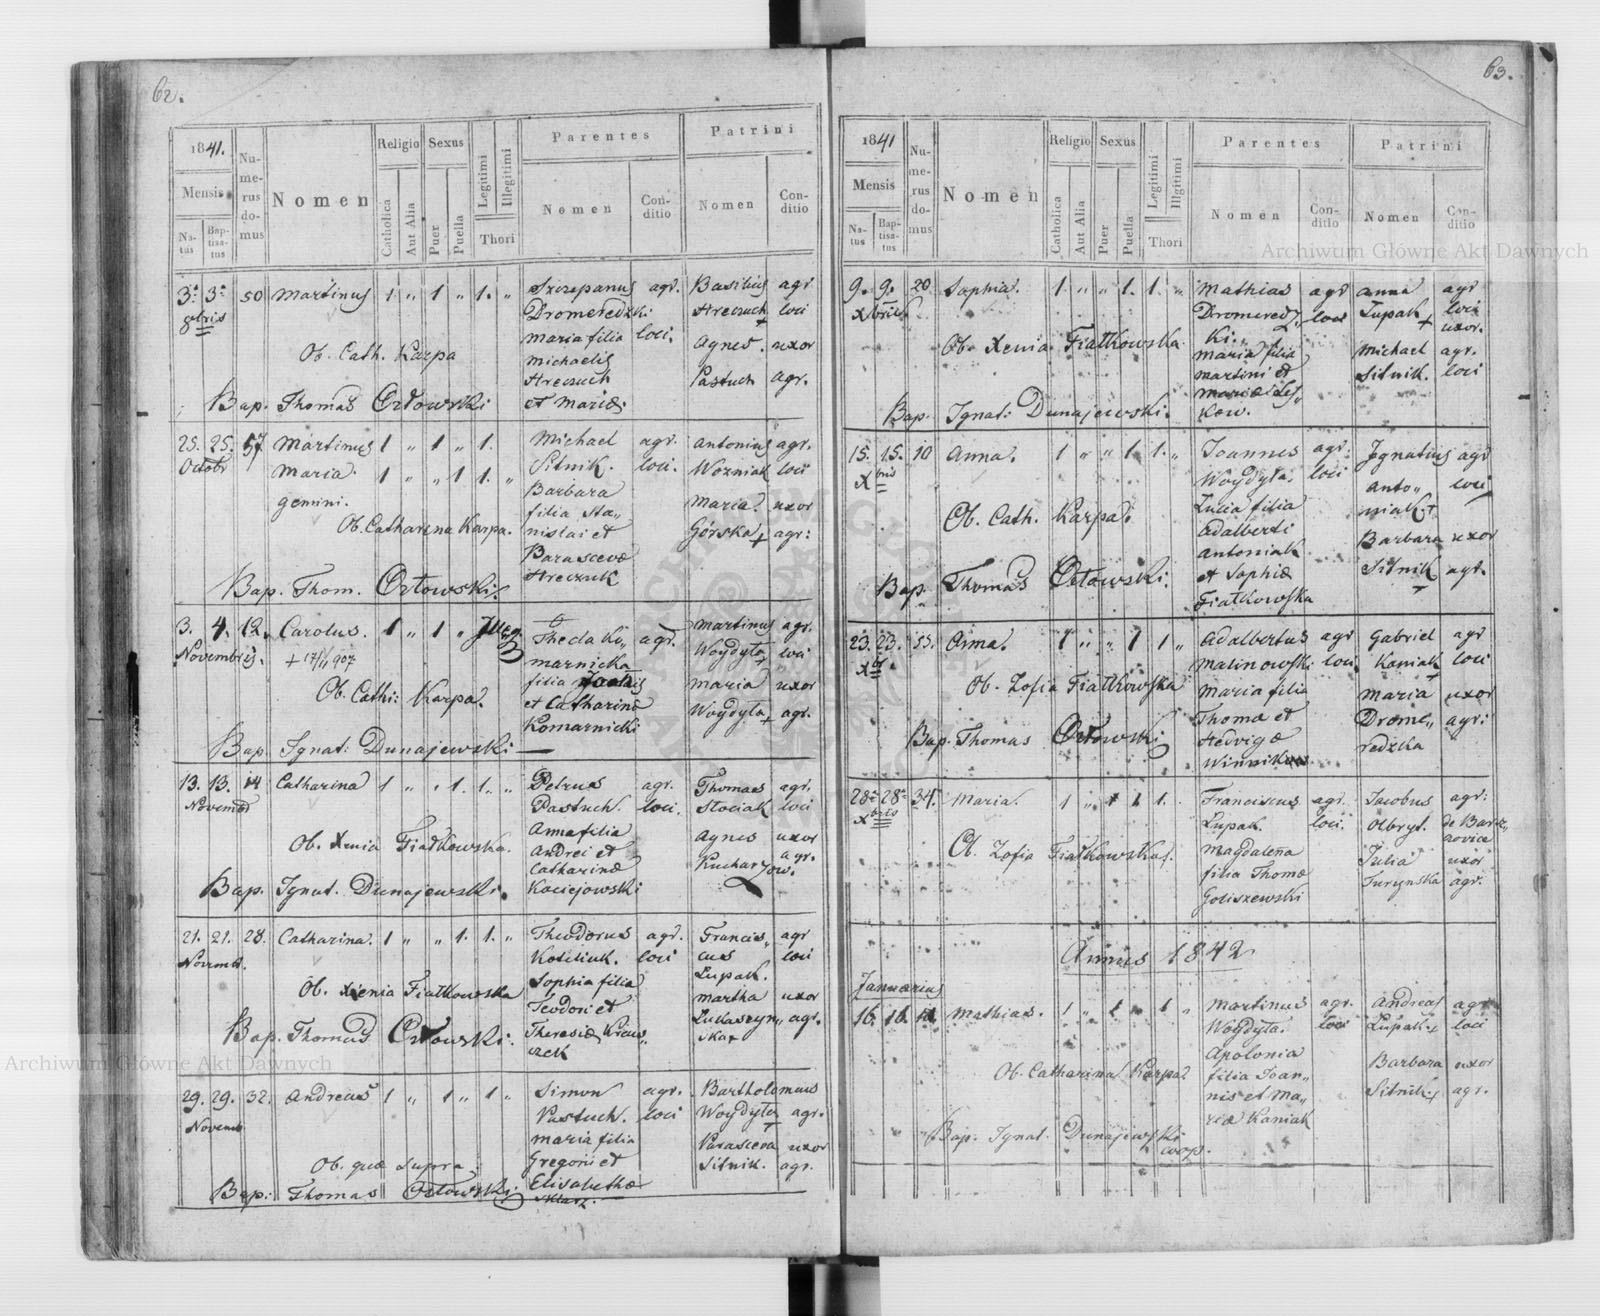 62.
1841.
Mensis
Natus
Baptisatus
Numerus domus
Nomen
Religio
Catholica
Aut Alia
Sexus
Puer
Puella
Legitimi
Illegitimi
Thori
Parentes
Nomen
Conditio
Patrini
Nomen
Conditio
3ª 3ª 50 Martinus 1 " 1 " 1. " Szczepanus agr. Basilius agr
9bris Dromeredzki Hreczuch + loci
Maria filia loci. Agnes. uxor
Ob. Cath. Karpa Michaelis Pastuch agr.
Hreczuch
Bap. Thomas Orłowski et Mariæ.
25. 25. 57 Martinus 1 " 1 " 1. Michael agr. Antonius agr.
Octobr Maria. 1 " " 1 1. " Sitnik. loci. Wozniak loci
gemini. Barbara Maria. uxor
filia Sta-
Ob. Catharena Karpa. nislai et Górska + agr:
Parascevæ
Bap. Thom. Orłowski. Hreczuk
3. 4. 12. Carolus. 1 " 1 " Illeg. Thecla Ko, agr. Martinus agr.
Novembris. + 17/11 907 marnicka Woydyła + loci
filia Maria uxor
Ob. Cath: Karpa. et Catharinæ Woydyła + agr.
Komarnicki
Bap. Ignat: Dunajewski
13. 13. 14 Catharina 1 " " 1. 1. " Petrus agr. Thomas agr.
Novembr Pastuch. loci. Stociak loci
Anna filia Agnes uxor
Ob. Xenia Fiałkowska. Andrei et Kucharzow. agr.
Catharinæ
Bap. Ignat. Dunajewski Kociejowski
21. 21. 28. Catharina. 1 " " 1. 1. " Theodorus agr. Francis, agr
Novemb. Kościuk. loci cus loci
Sophia filia Lupak.
Ob. Xienia Fiałkowska Teodori et Martha uxor
Theresiæ Kraw, Lukaszyn, agr.
Bap. Thomas Orłowski. czek ska +
29. 29. 32. Andreas 1 " 1 " 1 " Simon agr. Bartholomæus
Novemb Pastuch. loci Woydyła + agr.
Maria filia Parasceva uxor
Ob. quæ supra. Gregorii et Sitnik. agr.
Bap: Thomas Orłowski. Elisabethæ
63.
1841
Mensis
Natus
Baptisatus
Numerus domus
Nomen
Religio
Catholica
Aut Alia
Sexus
Puer
Puella
Legitimi
Illgitimi
Thori
Parentes
Nomen
Conditio
Patrini
Nomen
Conditio
9. 9. 20 Sophia. 1 " " 1. 1. " Mathias agr Anna agr
Xbris Dromered, loci Lupak + loci
ki. uxor.
Ob. Xenia Fiałkowska. Maria filia Michael agr.
Martini et Sitnik. loci
Bap. Ignat: Dunajewski.
15. 15. 10 Anna. 1 " " 1 1. " Joannes agr. Ignatius agr
Xbris Woydyła. loci Anto, loci
Lucia filia niak +
Ob. Cath. Karpa. Adalberti Barbara uxor
Antoniak Sitnik agr.
Bap. Thomas Orłowski. et Sophiæ
Fiałkowska
23. 23. 53. Anna. 1 " " 1 1 " Adalbertus agr Gabriel agr
Xbr Malinowski loci Kaniak loci
Ob. Zofia Fiałkowska Maria filia Maria uxor
Thomæ et Drome,, agr:
Bap. Thomas Orłowski Hedvigæ redzka
28ª 28ª 34. Maria. 1 " 1 1. Franciscus agr. Jacobus agr:
Xbris Lupak. loci. Olbryt. de Barz,
Magdalena Julia uxor
Ob. Zofia Fiałkowska. filia Thomæ Turynska agr.
Goliszewski
Annus 1842
Januarius
16. 16. Mathias. 1 " 1 " 1 " Martinus agr. Andreas agr
Woydyła. loci Lupak + loci
Apolonia Barbara uxor
Ob. Catharina Karpa filia Joan, Sitnik + agr.
nis et Ma,
riæ Kaniak
Bap. Ignat. Dunajewski
coop.
Archiwum Główne Akt Dawnych
Archiwum Główne Akt Dawnych